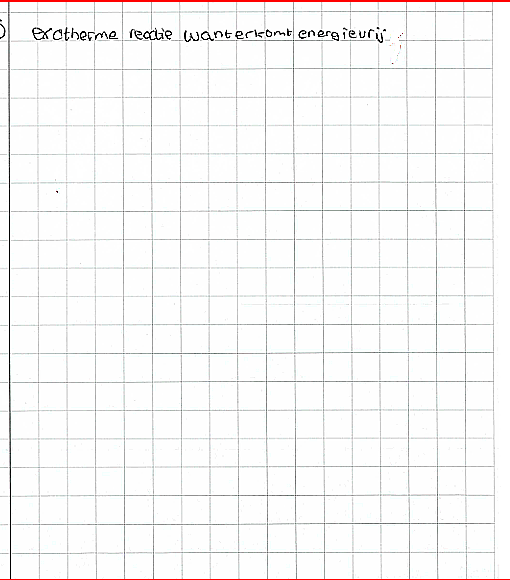 exotherme reactie want er komt energie vrij